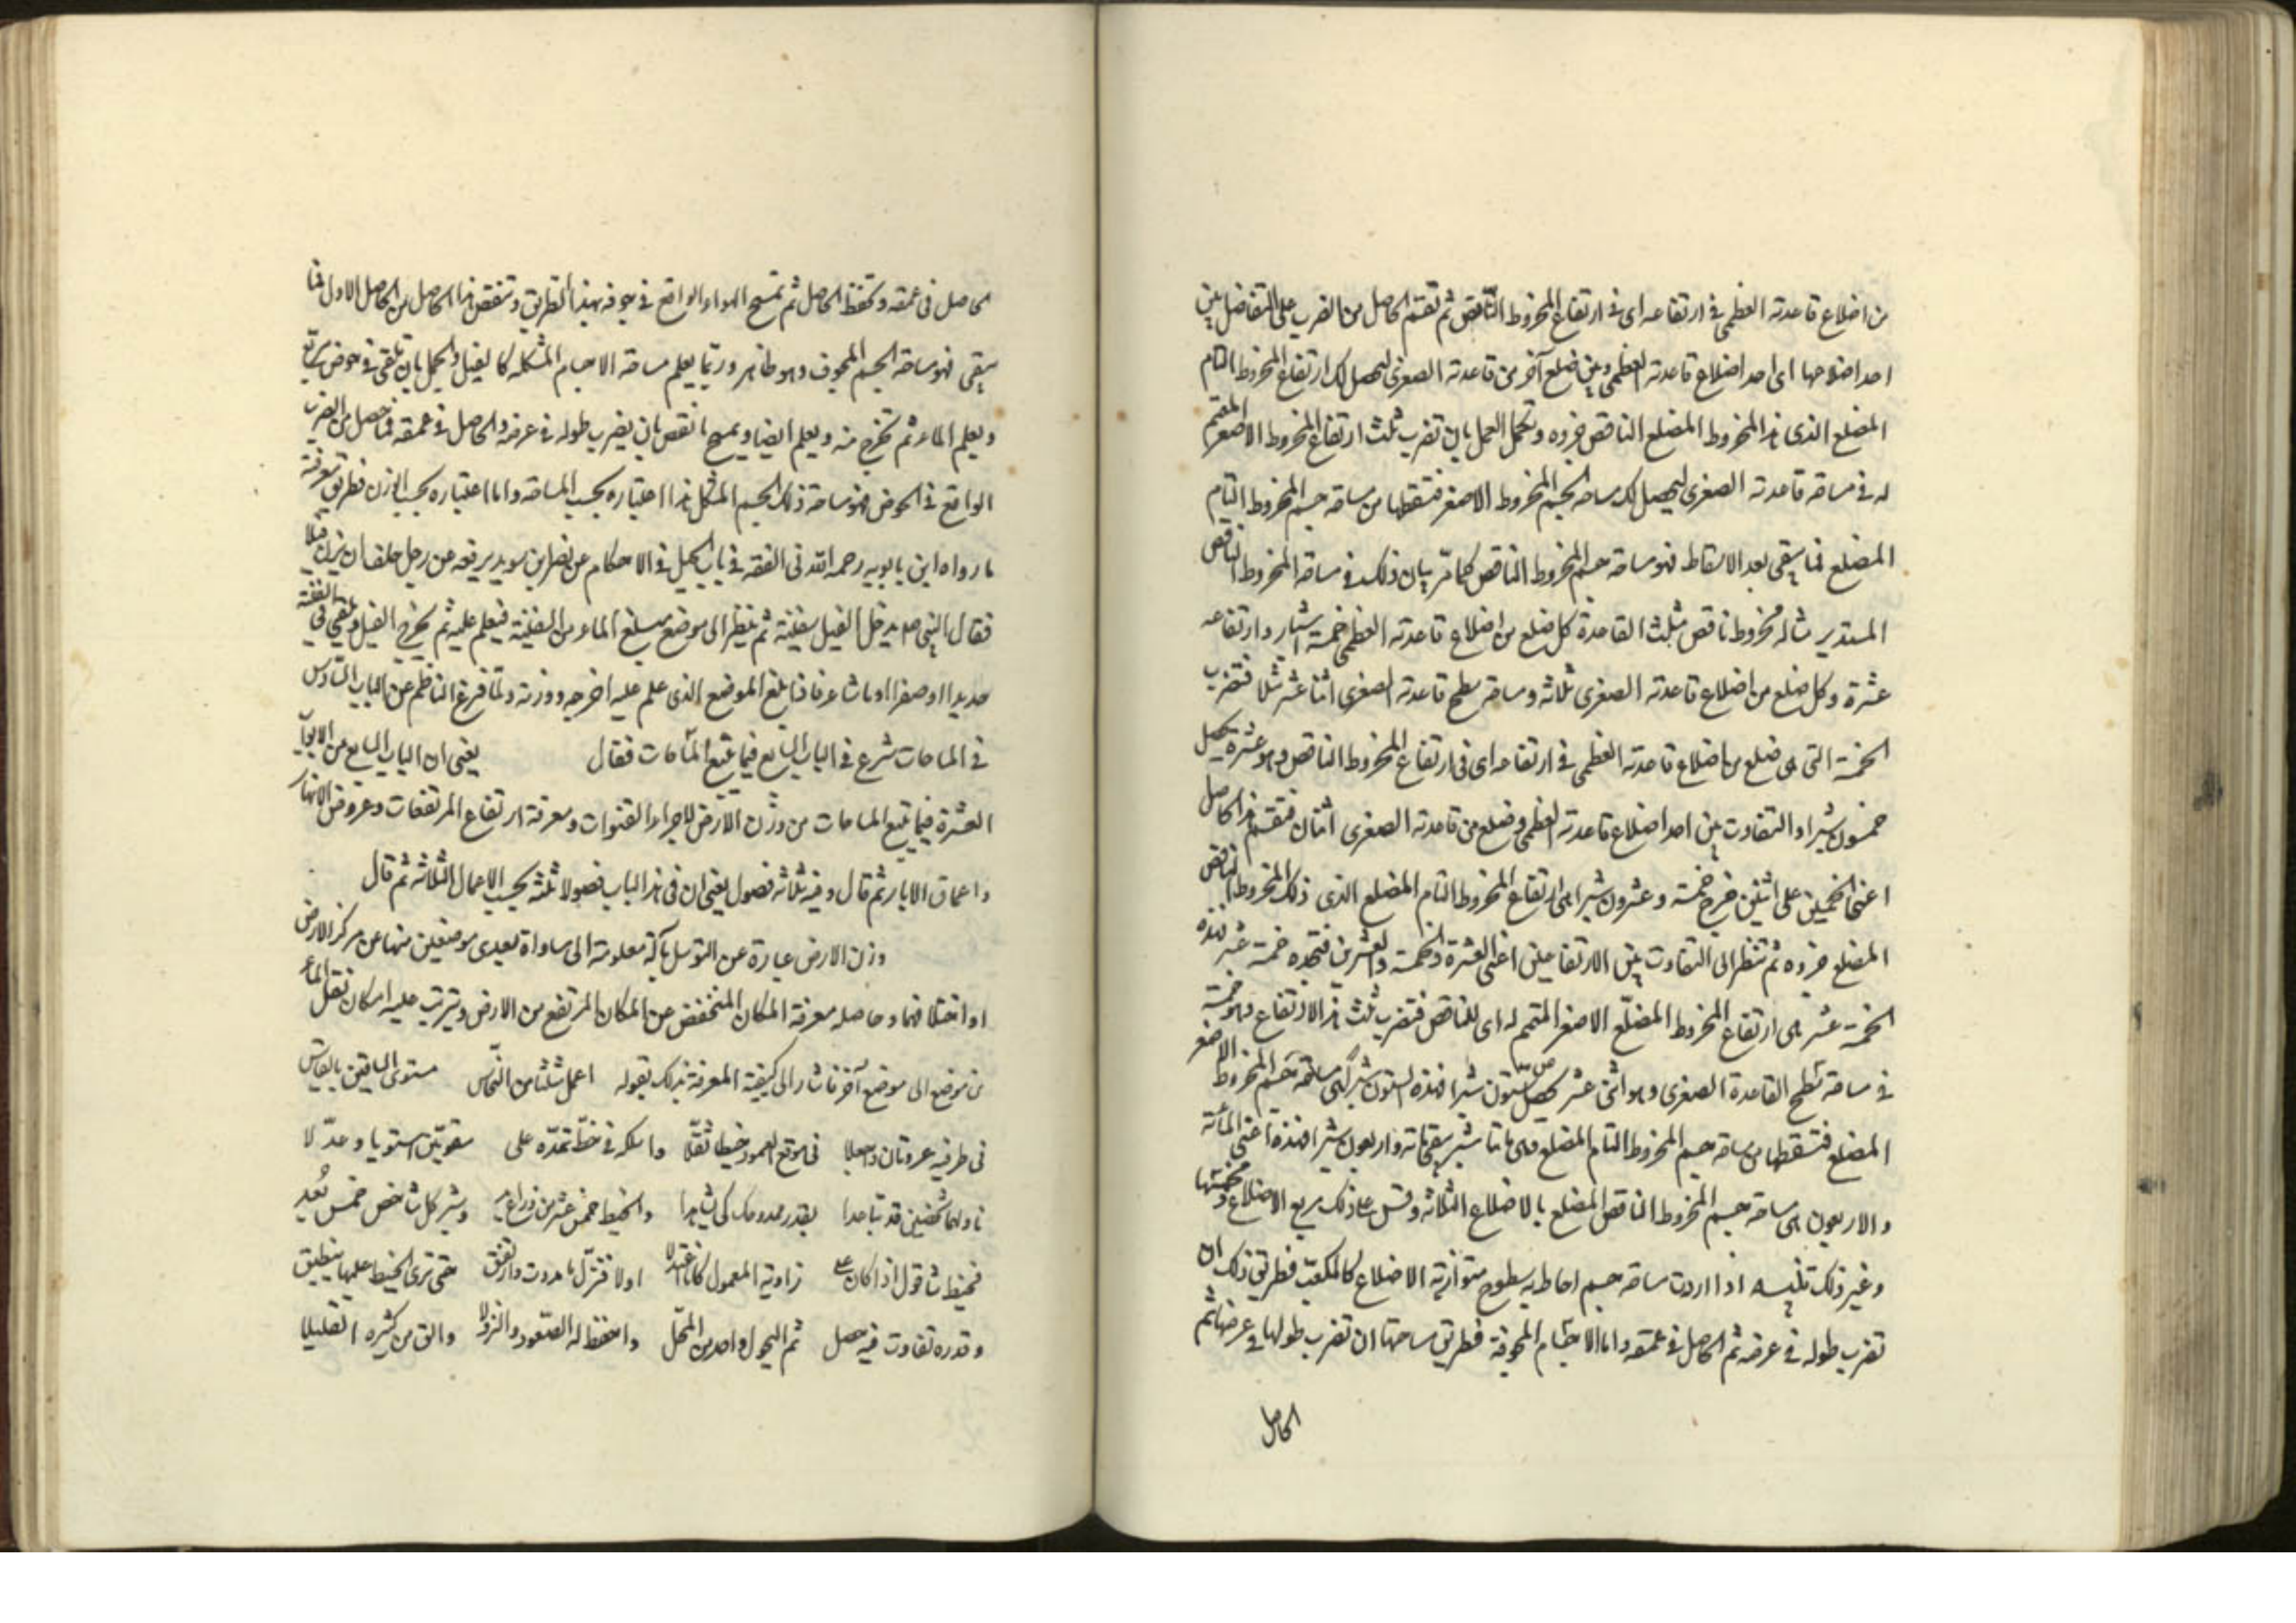 من اضلاع قاعدته العظمى فى ارتفاعه اى فى ارتفاع المخروط الناقص ثم تقسم الحاصل من الضرب على التفاضل بين
احد اضلاعها اى احد اضلاع قاعدته العظمى وبين ضلع آخر من قاعدته الصغرى ليحصل لك ارتفاع المخروط التام
المضلع الذى هذا المخروط المضلع الناقص جزوه وتكمل العمل بان تضرب ثلث ارتفاع المخروط الاصغر المتمم
له فى مساحة قاعدته الصغرى ليحصل لك مساحة الجسم المخروط الاصغر فتسقطها من مساحة جسم المخروط التام
المضلع فما يبقى بعد الاسقاط فهو مساحة جسم المخروط الناقص كما مرّ بيان ذلك فى مساحة المخروط الناقص
المستدير مثاله مخروط ناقص مثلث القاعدة كل ضلع من اضلاع قاعدته العظمى خمسة اشبار وارتفاعه
عشرة وكل ضلع من اضلاع قاعدته الصغرى ثلاثه ومساحة سطح قاعدته الصغرى اثنا عشر مثلا فتضرب
الخمسة التى هى ضلع من اضلاع قاعدته العظمى فى ارتفاعه اى فى ارتفاع المخروط الناقص وهو عشرة يحصل
خمسون شبرا والتفاوت بين احد اضلاع قاعدته العظمى وضلع من قاعدته الصغرى اثنان فتقسم هذا الحاصل
اعنى الخمسين على اثنين خرج خمسة وعشرون شبرا هى ارتفاع المخروط التام المضلع الذى ذلك المخروط الناقص
المضلع جزوه ثم تنظر الى التفاوت بين الارتفاعين اعنى العشرة والخمسة والعشرين فتجده خمسة عشر فهذه
الخمسة عشر هى ارتفاع المخروط المضلع الاصغر المتمم له اى للناقص فتضرب ثلث هذا الارتفاع وهو خمسة
فى مساحة سطح القاعدة الصغرى وهو اثنى عشر يحصل ستون شبرا فهذه الستون شبرا هى مساحة جسم المخروط الاصغر
المضلع فتسقطها من مساحة جسم المخروط التام المضلع وهى مائتا شبر يبقى مائة واربعون شبرا فهذه اعنى المائة
والاربعون هى مساحة جسم المخروط الناقص المضلع بالاضلاع الثلاثه وقس على ذلك مربع الاضلاع ومخمسها
وغير ذلك تنبيه اذا اردت مساحة جسم احاط به سطوح متوازية الاضلاع كالمكعب فطريق ذلك ان
تضرب طوله فى عرضه ثم الحاصل فى عمقه واما الاجسام المجوفة فطريق مساحتها ان تضرب طولها فى عرضها ثم
الحاصل
الحاصل فى عمقه وتحفظ الحاصل ثم تمسح الهواء الواقع فى جوفه بهذا الطريق وتنقص هذا الحاصل من الحاصل الاول فما
يبقى فهو مساحة الجسم المجوف وهو ظاهر وربّما يعلم مساحة الاجسام المشكله كالفيل والجمل بان تلقى فى حوض مربع
ويعلم الماء ثم تخرج منه ويعلم ايضا ويمسح ما نقص بان يضرب طوله فى عرضه والحاصل فى عمقه فما حصل من الضرب
الواقع فى الحوض فهو مساحة ذلك الجسم المشكل هذا اعتباره بحسب المساحة واما اعتباره بحسب الوزن فطريق معرفته
ما رواه ابن بابويه رحمه الله فى الفقه فى باب الحيل فى الاحكام عن نضر بن سويد يرفعه عن رجل حلف ان يزن فيلا
فقال النبى ص يدخل الفيل سفينة ثم ينظر الى موضع مبلغ الماء من السفينة فيعلم عليه ثم يخرج الفيل ويلقى فى السفينة
حديدا او صفرا او ما شاء فاذا بلغ الموضع الذى علم عليه اخرجه ووزنه ولما فرغ الناظم عن الباب السادس
فى المساحات شرع فى الباب السابع فيما يتبع المساحات فقال يعنى ان الباب السابع من الابواب
العشرة فيما يتبع المساحات من وزن الارض لاجراء القنوات ومعرفة ارتفاع المرتفعات وعروض الانهار
واعماق الابار ثم قال وفيه ثلاثة فصول يعنى ان فى هذا الباب فصولا ثلثة بحسب الاعمال الثلاثه ثم قال
وزن الارض عبارة عن التوسل بآلة معلومة الى مساواة بعدى موضعين منها عن مركز الارض
او اختلافهما وحاصله معرفة المكان المنخفض عن المكان المرتفع من الارض ويترتب عليه امكان نقل الماء
من موضع الى موضع آخر فاشار الى كيفية المعرفة بذلك بقوله اعمل مثلثا من النحاس مستوى الساقين بالقياس
فى طرفيه عروتان واجعلا فى موقع العمود خيطا ثقلا واسلكه فى خط تمدّه على مقومين استويا وعدّلا
ناولهما شخصين قد تباعدا بقدر ممدودك كى يشاهدا والخيط خمس عشر من ذراع وشبر كل شاخص خمس بعد
فخيط شاقول اذا كان على زاوية المعمول كانا اعتدلا اولا فنزّل ما مددت وارتفق حتى ترى الخيط عليها ينطبق
وقدره تفاوت فيه حصل ثم اليحول واحد من المحلّ واحفظ له الصّعود والنزولا والق من كثيره القليلا